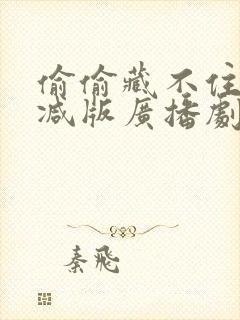 偷偷藏不住
减版廣播劇
秦飛